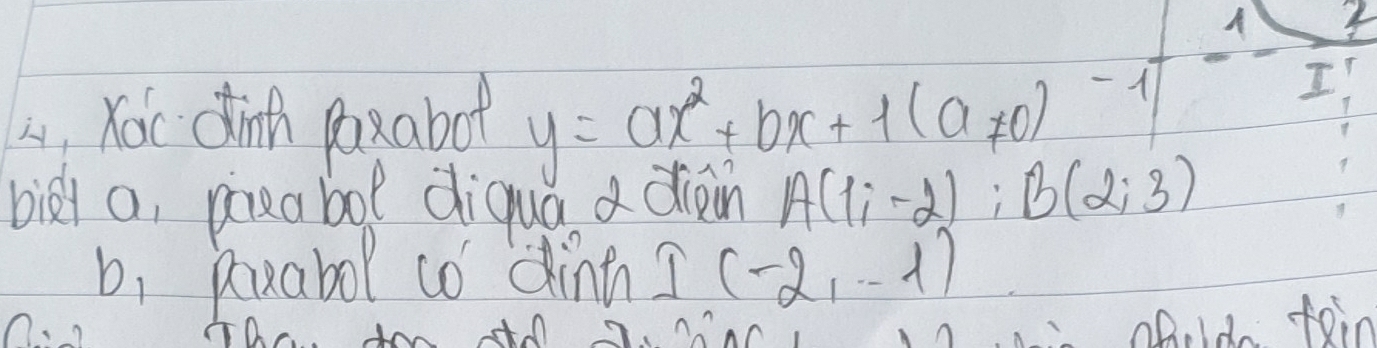 1 2
-1 I
4, Xác định parabol y = ax² + bx + 1 (a ≠ 0)
biết a, parabol đi qua 2 điểm A(1; -2) ; B(2; 3)
b, parabol có đỉnh I (-2, -1)